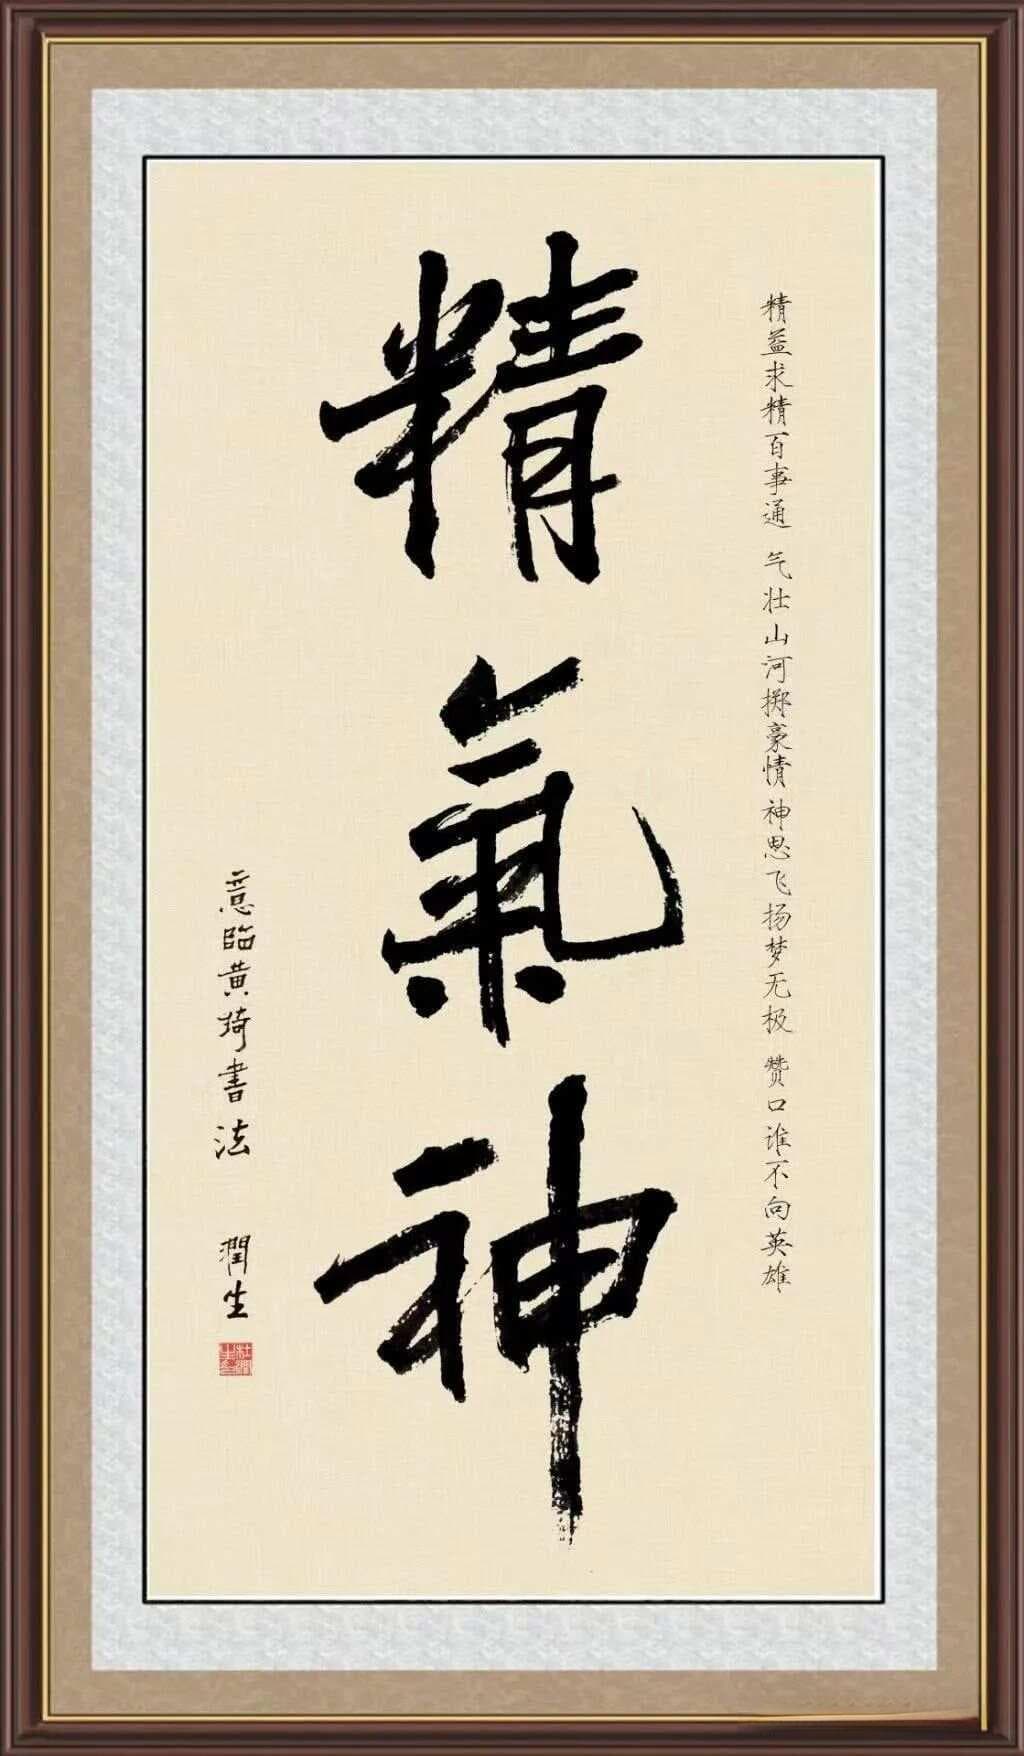 精益求精百事通 气壮山河掷豪情 神思飞扬梦无极 赞口谁不向英雄
精氣神
意临黄琦書法 潤生